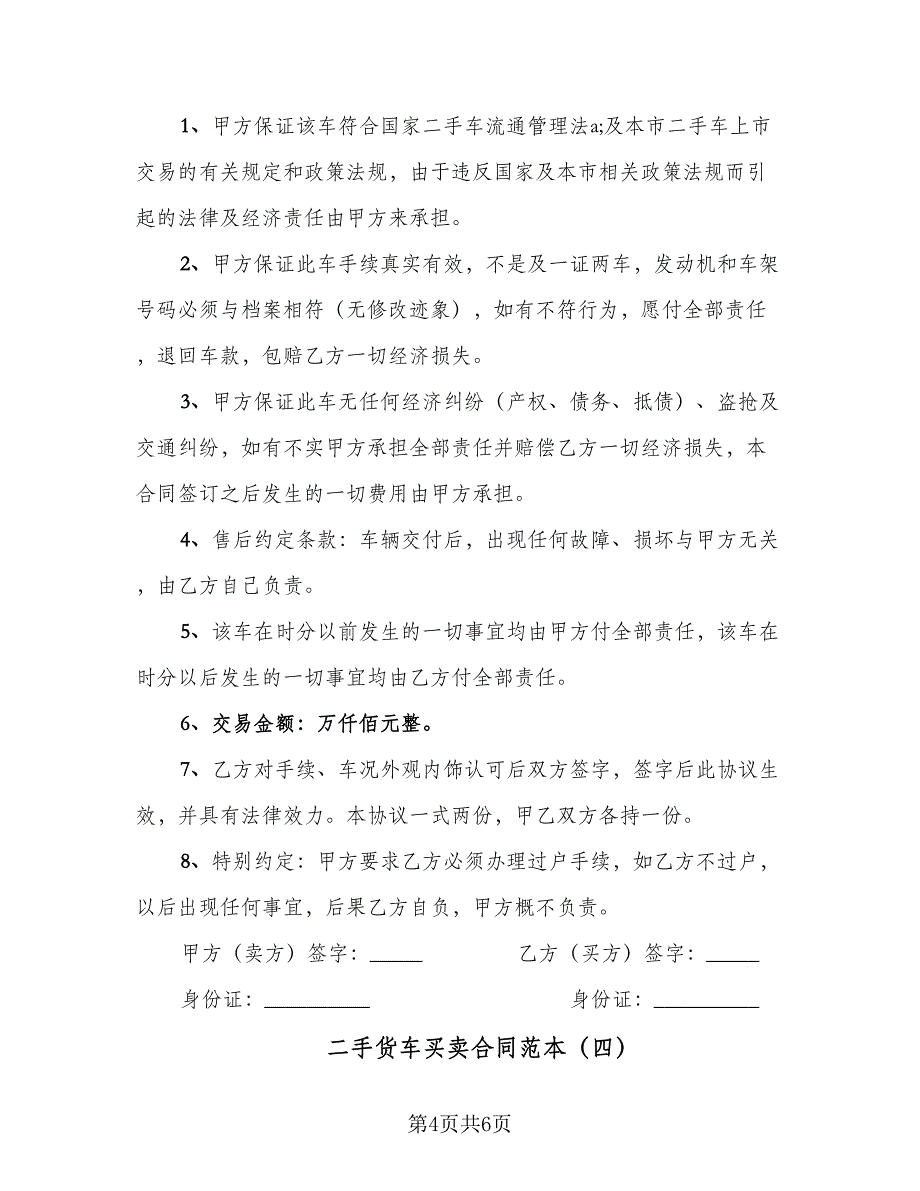 1、甲方保证该车符合国家二手车流通管理法a;及本市二手车上市
交易的有关规定和政策法规，由于违反国家及本市相关政策法规而引
起的法律及经济责任由甲方来承担。
2、甲方保证此车手续真实有效，不是及一证两车，发动机和车架
号码必须与档案相符（无修改迹象），如有不符行为，愿付全部责任
，退回车款，包赔乙方一切经济损失。
3、甲方保证此车无任何经济纠纷（产权、债务、抵债）、盗抢及
交通纠纷，如有不实甲方承担全部责任并赔偿乙方一切经济损失，本
合同签订之后发生的一切费用由甲方承担。
4、售后约定条款：车辆交付后，出现任何故障、损坏与甲方无关
，由乙方自己负责。
5、该车在时分以前发生的一切事宜均由甲方付全部责任，该车在
时分以后发生的一切事宜均由乙方付全部责任。
6、交易金额：万仟佰元整。
7、乙方对手续、车况外观内饰认可后双方签字，签字后此协议生
效，并具有法律效力。本协议一式两份，甲乙双方各持一份。
8、特别约定：甲方要求乙方必须办理过户手续，如乙方不过户，
以后出现任何事宜，后果乙方自负，甲方概不负责。
甲方（卖方）签字：_____ 乙方（买方）签字：_____
身份证：__________ 身份证：__________
二手货车买卖合同范本（四）
第4页共6页